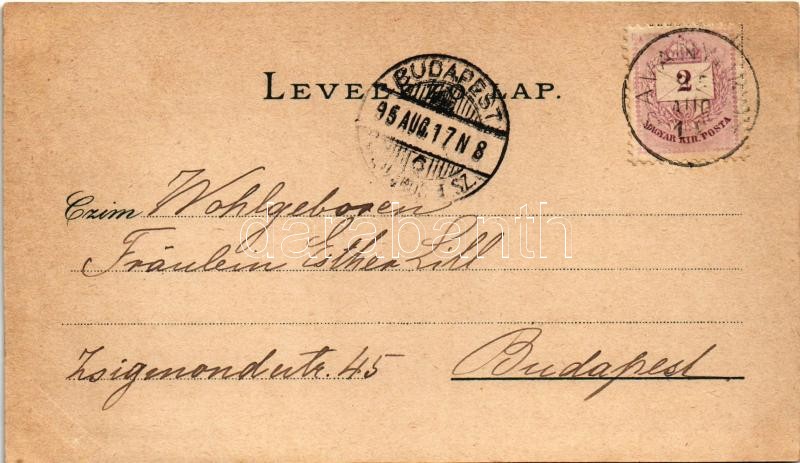 LEVELEZŐ-LAP.
BUDAPEST
95 AUG. 17 N 8
2
AUG
MAGYAR KIR. POSTA
Czim Wohlgeboren
Fräulein Esther Lill
Zsigmondestr. 45 Budapest
darabanth